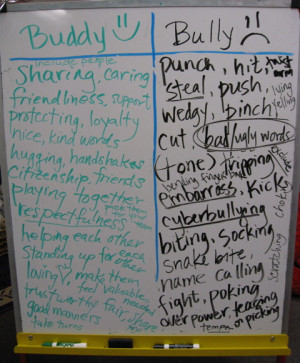 Buddy
include people
Sharing, caring
friendliness, support
protecting, loyalty
nice, kind words
hugging, handshakes
Citizenship, friends
playing together
respectfulness
helping each other
Standing up for each other
loving, make them
feel valuable, needed
trustworthy, fair, share
good manners
take turns
Bully
punch, hit, twist arm
steal, push, lying
wedgy, pinch, yelling
cut, bad/ugly words
(tone) tripping
bending fingers back
embarrass, kick
choking
cyberbullying
biting, socking
scratching
snake bite,
name calling
fight, poking
over power, teasing
or picking